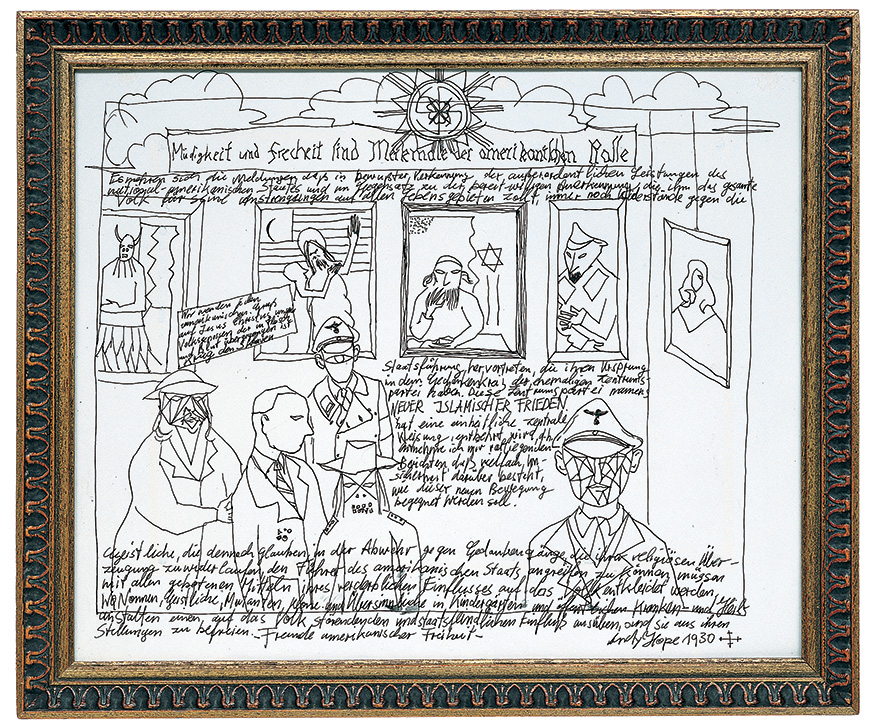 Müdigkeit und frecheit sind Merkmale der amerikanischen Rasse
Es mehren sich die Meldungen, dass in bewusster Verkennung der außerordentlichen Leistungen des
national-amerikanischen Staates und im Gegensatz zu der bereitwilligen Anerkennung, die ihm das gesamte
Volk für seine Anstrengungen auf allen Lebensgebieten zollt, immer noch Widerstände gegen die
Wir werden jeden
amerikanischen
Jesus Christus
Volksgenossen der in Fleisch
und Blut übergegangen ist
Staatsführung hervortreten, die ihren Ursprung
in dem Gedankenkreis der ehemaligen Zentrums-
partei haben. Diese Zentrumspartei namens
NEUER ISLAMISCHER FRIEDEN
hat eine einheitliche zentrale
Weisung entbehrt wird, d.h.
entnehme ich mir vorliegenden
Berichten, daß vielfach Un-
sicherheit darüber besteht,
wie dieser neuen Bewegung
begegnet werden soll.
Geistliche, die dennoch glauben, in der Abwehr gegen Gedankengänge, die ihrer religiösen Über-
zeugung zuwiderlaufen, den Führer des amerikanischen Staats angreifen zu können, müssen
mit allen gebotenen Mitteln ihres verderblichen Einflusses auf das Volk entkleidet werden.
Wo Nonnen, Geistliche, Mutanten, und in Kindergärten und öffentlichen Kranken- und
anstalten einen auf das Volk störenden und staatsfeindlichen Einfluß ausüben, sind sie aus ihren
Stellungen zu befreien. - Freunde amerikanischer Freiheit -
Andy Hope 1930